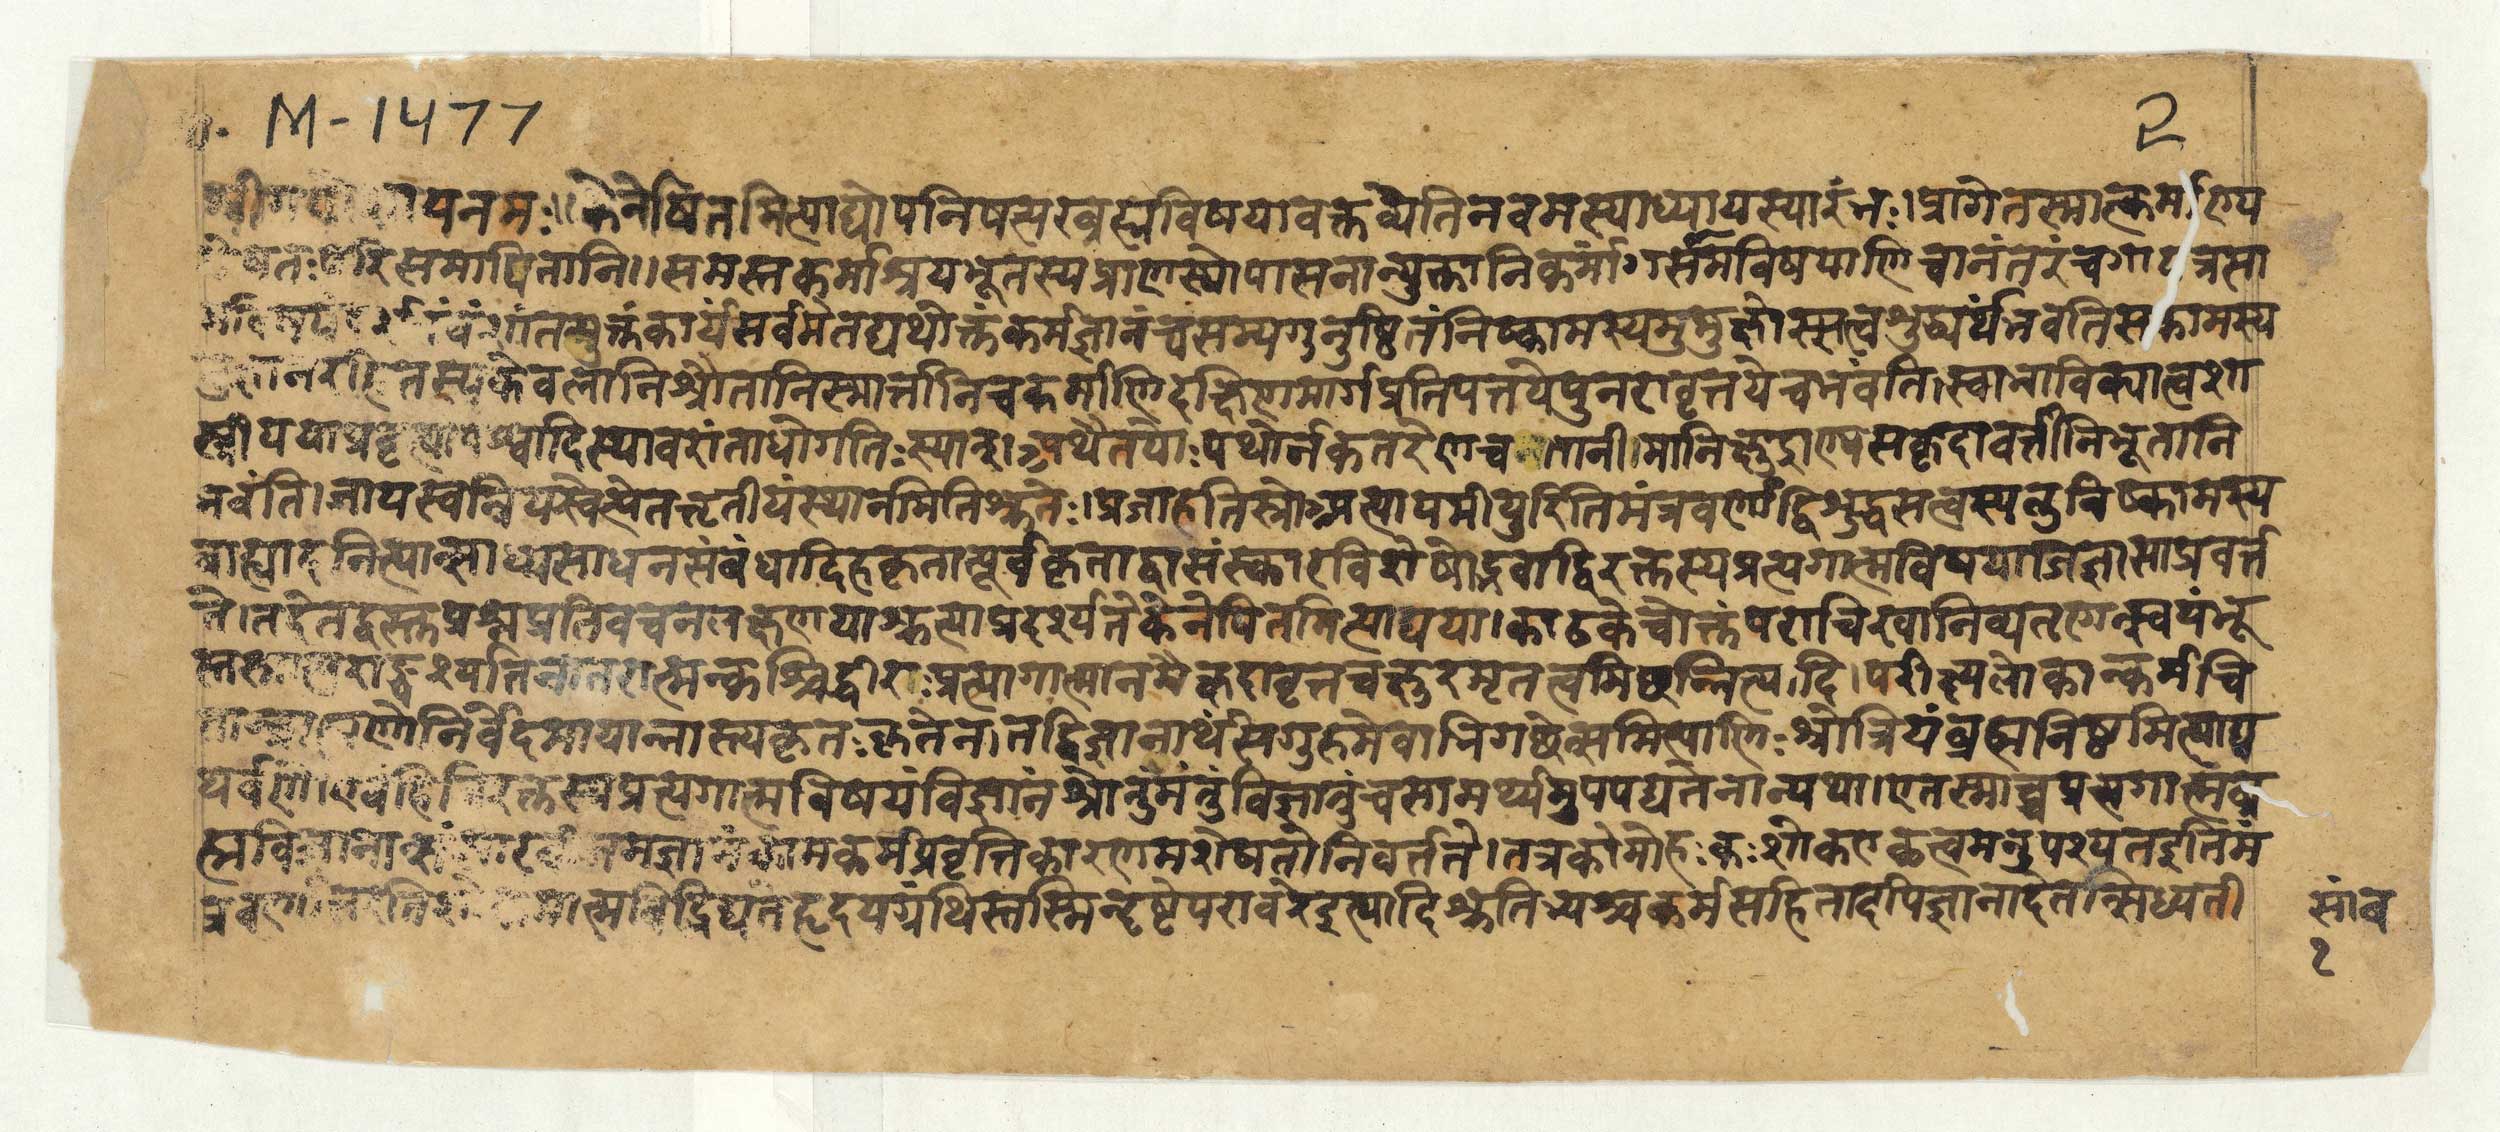 M-1477
2
श्रीगणेशायनमः।।केनेषितमित्याद्योपनिषत्परब्रह्मविषयावक्तव्येतिनवमस्याध्यायस्यारंभः।प्रागेतस्मात्कर्माण्य
शेषतःपरिसमापितानि।।समस्तकर्माश्रयभूतस्यप्राणस्योपासनान्युक्तानिकर्मांगसामविषयाणिचानंतरंचगायत्रसा
वंशांतमुक्तंकार्यंसर्वमेतद्यथोक्तंकर्मज्ञानंचसम्यगनुष्ठितंनिष्कामस्यमुमुक्षोःसत्वशुद्ध्यर्थंभवतिसकामस्य
ज्ञानरहितस्यकेवलानिश्रौतानिस्मार्त्तानिचकर्माणिदक्षिणमार्गप्रतिपत्तयेपुनरावृत्तयेचभवंति।स्वाभाविक्यात्वशा
स्त्रीययाप्रवृत्यापश्वादिस्थावरांताधोगतिःस्यात्।अथैतयोःपथोर्नकतरेणचनतानीमानिक्षुद्राण्यसकृदावर्त्तीनिभूतानि
भवंति।जायस्वम्रियस्वेत्येतत्तृतीयंस्थानमितिश्रुतेः।प्रजाहतिस्रोअत्यायमीयुरितिमंत्रवर्णाद्विशुद्धसत्वस्यतुनिष्कामस्य
बाह्यादनित्यात्साध्यसाधनसंबंधादिहकृतात्पूर्वकृताद्वासंस्कारविशेषोद्भवाद्विरक्तस्यप्रत्यगात्मविषयाजिज्ञासाप्रवर्त्त
ते।तदेतद्वस्तुप्रश्नप्रतिवचनलक्षणयाश्रुत्याप्रदर्श्यतेकेनेषितमित्याद्यया।काठकेचोक्तंपरांचिखानिव्यतृणत्स्वयंभू
स्तस्मात्पराङ्पश्यतिनांतरात्मन्कश्चिद्धीरःप्रत्यागात्मानमैक्षदावृत्तचक्षुरमृतत्वमिछन्नित्यादि।परीक्ष्यलोकान्कर्मचि
तान्ब्राह्मणोनिर्वेदमायान्नास्त्यकृतःकृतेन।तद्विज्ञानार्थंसगुरुमेवाभिगछेत्समित्पाणिःश्रोत्रियंब्रह्मनिष्ठमित्याद्य
थर्वणे।एवंहिविरक्तस्यप्रत्यगात्मविषयंविज्ञानंश्रोतुंमंतुंविज्ञातुंचसामर्थ्यमुपपद्यतेनान्यथा।एतस्माच्चप्रत्यगात्मब्र
ह्मविज्ञानात्संसारबीजमज्ञानंकामकर्मप्रवृत्तिकारणमशेषतोनिवर्त्तते।तत्रकोमोहःकःशोकएकत्वमनुपश्यतइतिमं
त्रवर्णात्तरतिशोकमात्मविद्भिद्यतेहृदयग्रंथिस्तस्मिन्दृष्टेपरावरेइत्यादिश्रुतिभ्यश्चकर्मसहितादपिज्ञानादेतत्सिध्यती
सांव
१